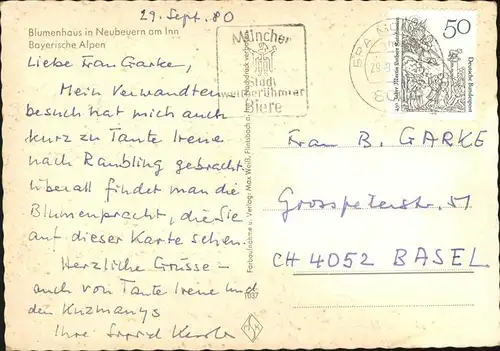 29. Sept. 80
Blumenhaus in Neubeuern am Inn
Bayerische Alpen
Liebe Frau Garke,
Mein Verwandten
besuch hat mich auch
kurz zu Tante Irene
nach Raubling gebracht
überall findet man die
Blumenpracht, die Sie
auf dieser Karte sehen.
Herzliche Grüsse –
auch von Tante Irene und
den Kuzmanys
Ihre
München
Stadt
weltberühmter
Biere
50
Deutsche Bundespost
Frau B. GARKE
Grosspeterstr. 51
CH 4052 BASEL
Farbaufnahme u. Verlag: Max Weiß, Flintsbach a. Inn · Nachdruck verboten
1037